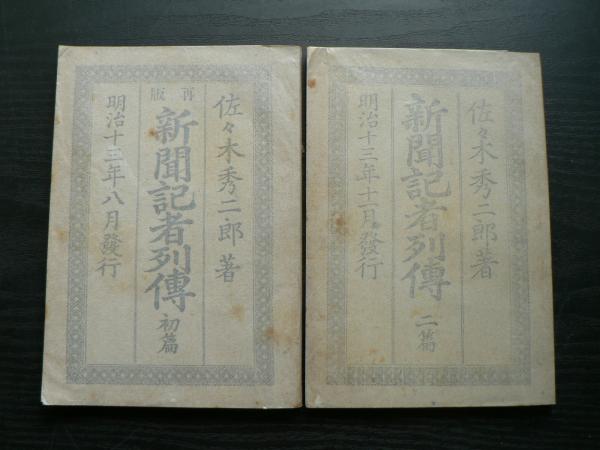 佐々木秀二郎著
再版
新聞記者列傳 初篇
明治十三年八月發行
佐々木秀二郎著
新聞記者列傳 二篇
明治十三年十一月發行